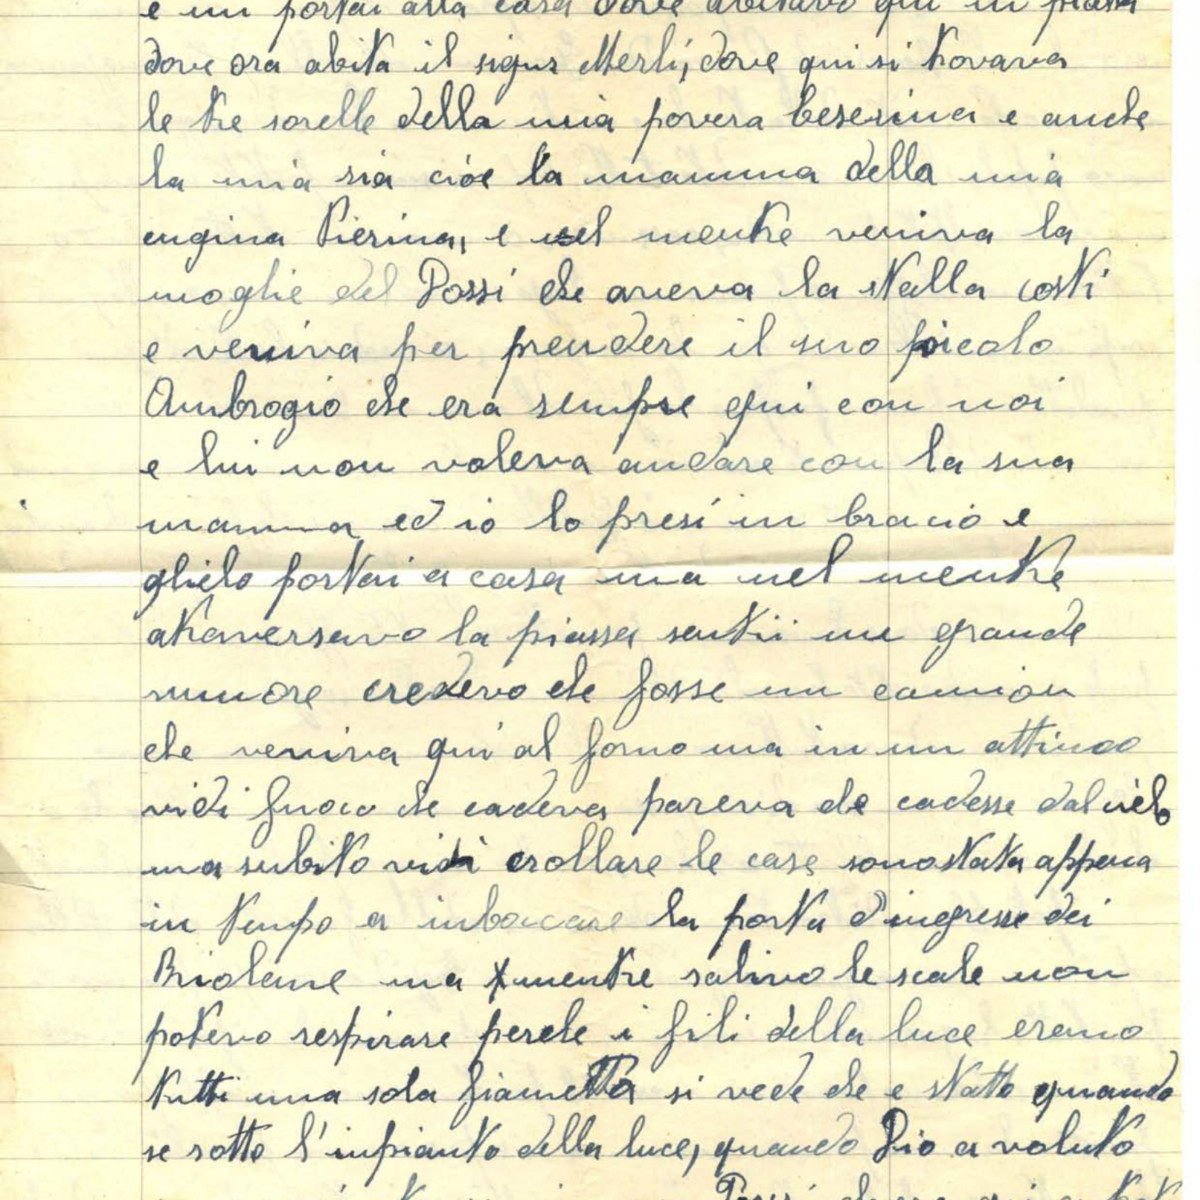 e un portai alla casa dove abitavo qui in piassa
dove ora abita il sigur Merli, dove qui si trovava
le tre sorelle della mia povera besesina e anche
la mia sia cioe la mamma della mia
cugina Pierina, e nel mentre veniva la
moglie del Possi che aveva la stalla costi
e veniva per prendere il suo picolo
Ambrogio che era sempre qui con noi
e lui non voleva andare con la sua
mamma ed io lo presi in bracio e
glielo portai a casa ma nel mentre
atraversavo la piassa sentii un grande
rumore credevo che fosse un camion
che veniva qui al forno ma in un attimo
vidi fuoco che cadeva pareva che cadesse dal cielo
ma subito vidi crollare le case sono stata appena
in tempo a imboccare la porta d'ingresse dei
Briolane ma mentre salivo le scale non
potevo respirare perche i fili della luce erano
tutti una sola fiametta si vede che e statto quando
se rotto l'impianto della luce, quando Dio a voluto